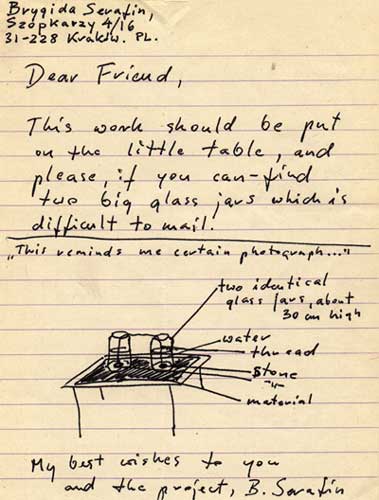 Brygida Serafin,
Szopkarzy 4/16
31-228 Kraków. PL.
Dear Friend,
This work should be put
on the little table, and
please, if you can-find
two big glass jars which is
difficult to mail.
„This reminds me certain photograph..."
two identical
glass jars, about
30 cm high
water
thread
stone
-"-
material
My best wishes to you
and the project, B. Serafin